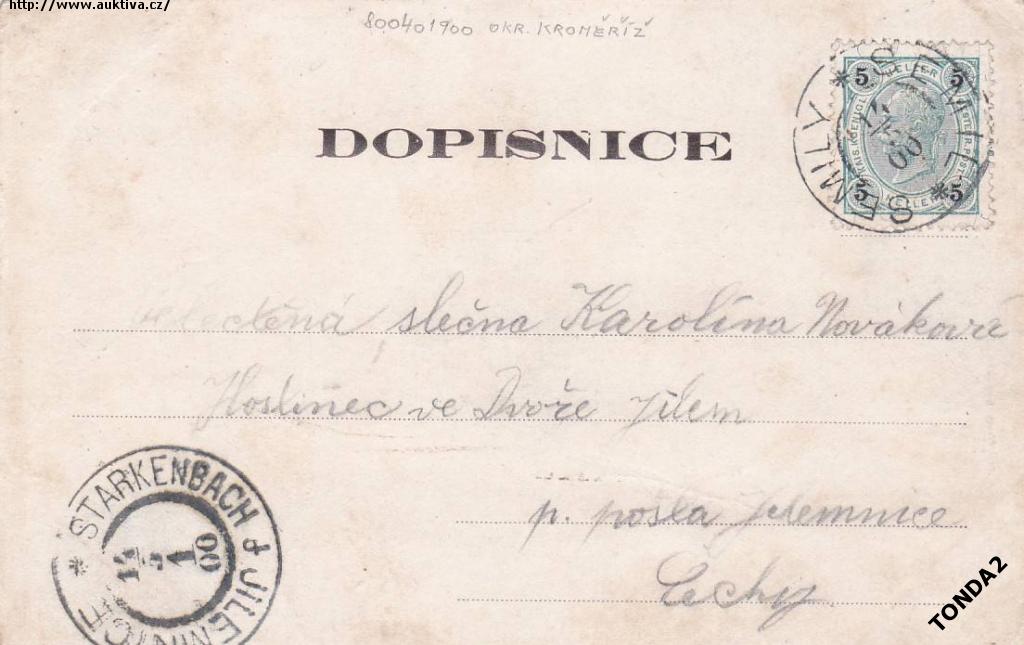 http://www.auktiva.cz/
800401900 OKR. KROMĚŘÍŽ
DOPISNICE
5 HELLER 5
5 HELLER 5
SEMIL * SEMILY *
00
slečna Karolína Nováková
Hostinec ve Dvoře Jilem
p. pošta Jilemnice
Čechy
* STARKENBACH & JILEMNICE
1
00
TONDA2